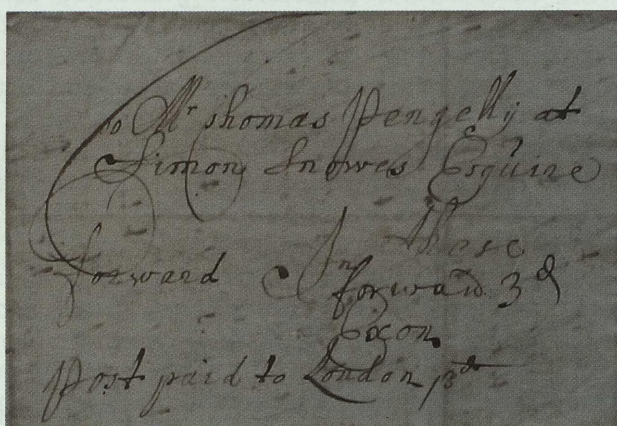 To Mr Thomas Pengelly at
Simon Snowes Esquire
These
forward In
forward 3d
Exon
Post paid to London 3d